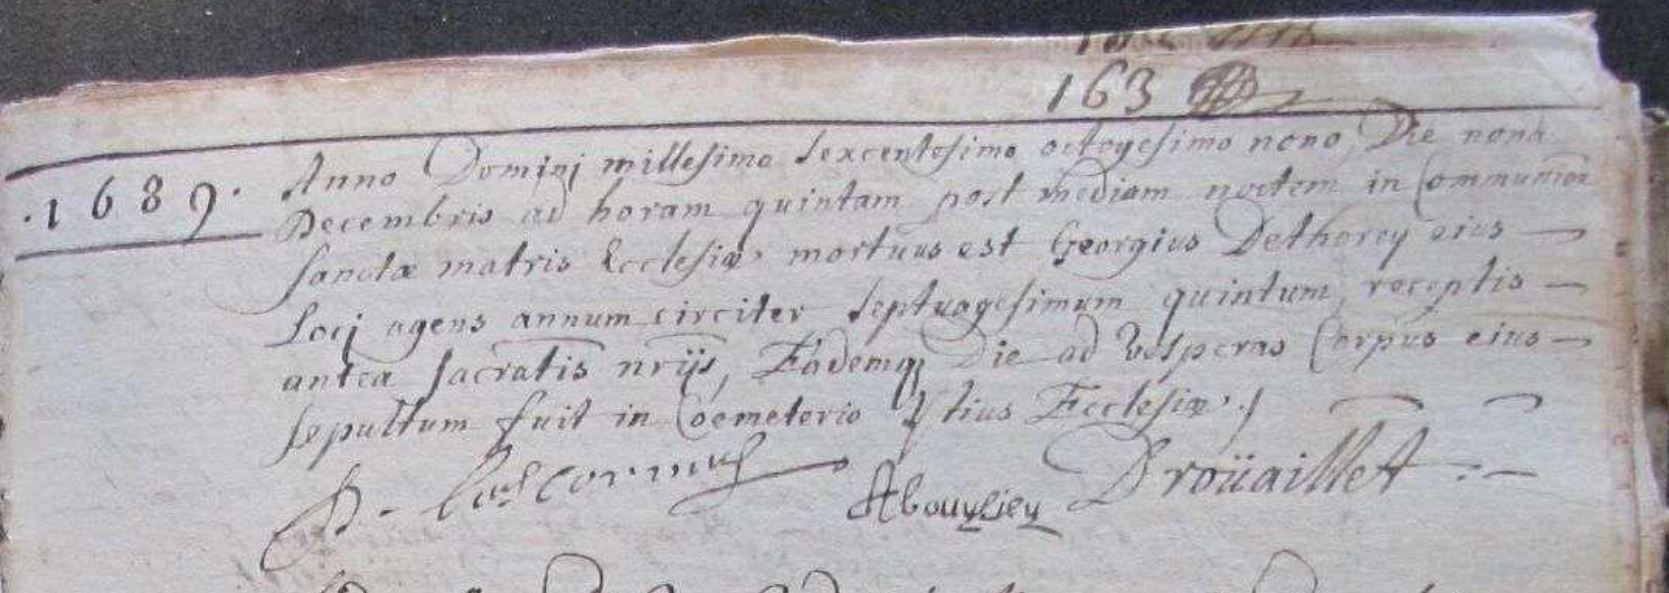 163
·1689·
Anno Domini millesimo sexcentesimo octogesimo nono, Die nona
Decembris ad horam quintam post mediam noctem in Communioē
sanctæ matris Ecclesiæ mortuus est Georgius Dethorey eius
Locj agens annum circiter septuagesimum quintum, receptis
antea sacratis nrijs, Eademq Die ad Vesperas Corpus eius
sepultum fuit in Coemeterio Istius Ecclesiæ./
Droüaillet